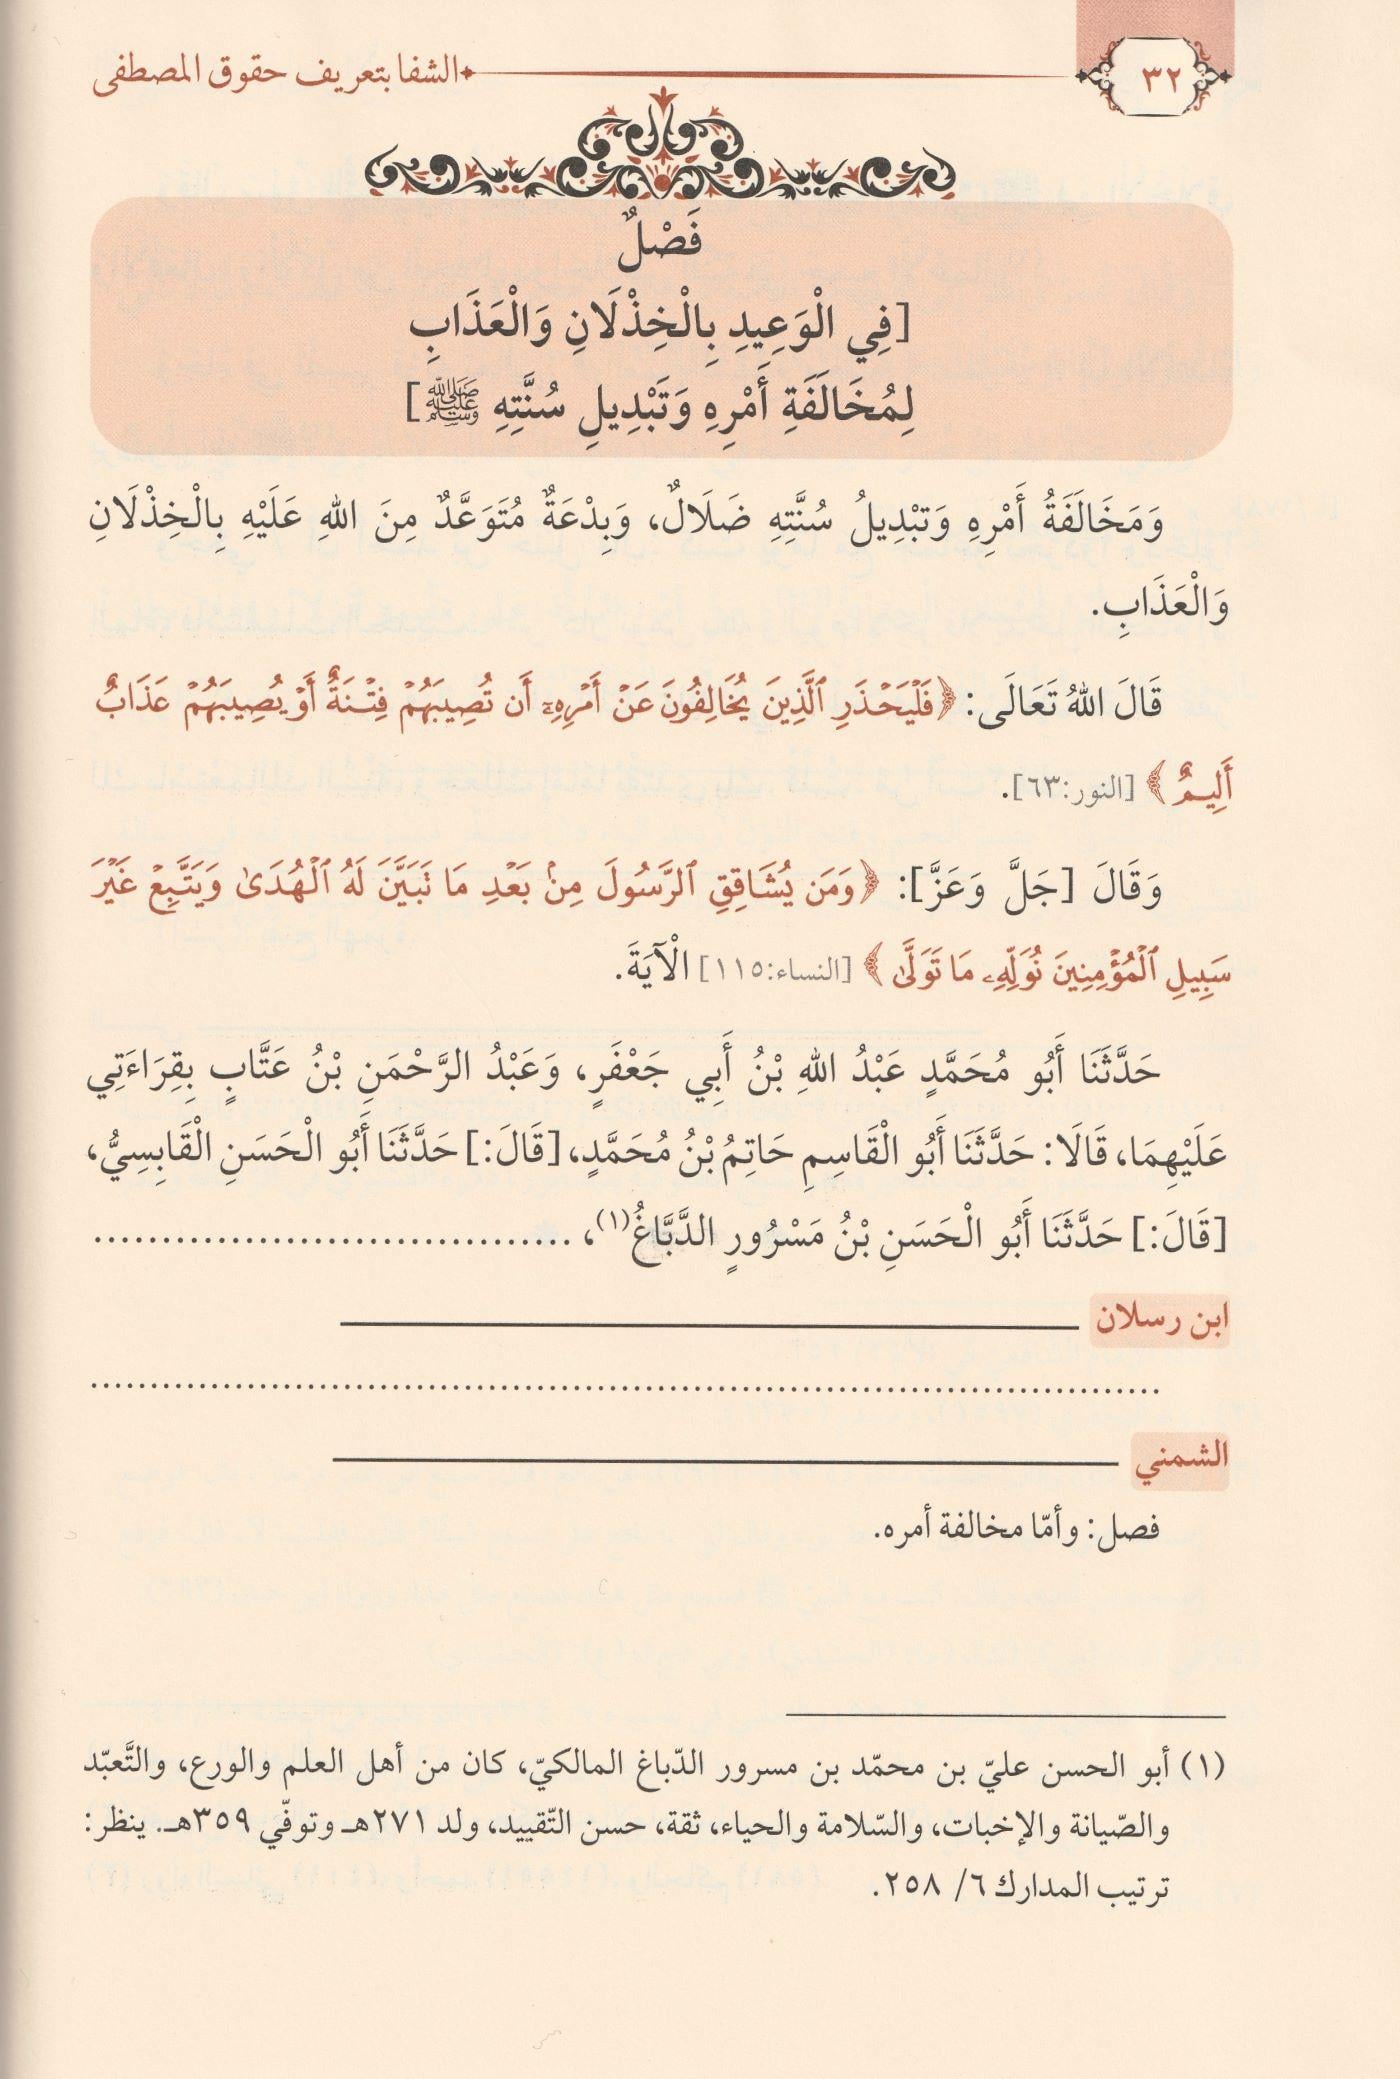 ٣٢
الشفا بتعريف حقوق المصطفى
فَصْلٌ
[فِي الْوَعِيدِ بِالْخِذْلَانِ وَالْعَذَابِ
لِمُخَالَفَةِ أَمْرِهِ وَتَبْدِيلِ سُنَّتِهِ ﷺ]
وَمَخَالَفَةُ أَمْرِهِ وَتَبْدِيلُ سُنَّتِهِ ضَلَالٌ، وَبِدْعَةٌ مُتَوَعَّدٌ مِنَ اللهِ عَلَيْهِ بِالْخِذْلَانِ
وَالْعَذَابِ.
قَالَ اللهُ تَعَالَى: ﴿فَلْيَحْذَرِ ٱلَّذِينَ يُخَالِفُونَ عَنْ أَمْرِهِۦٓ أَن تُصِيبَهُمْ فِتْنَةٌ أَوْ يُصِيبَهُمْ عَذَابٌ
أَلِيمٌ﴾ [النور:٦٣].
وَقَالَ [جَلَّ وَعَزَّ]: ﴿وَمَن يُشَاقِقِ ٱلرَّسُولَ مِنۢ بَعْدِ مَا تَبَيَّنَ لَهُ ٱلْهُدَىٰ وَيَتَّبِعْ غَيْرَ
سَبِيلِ ٱلْمُؤْمِنِينَ نُوَلِّهِۦ مَا تَوَلَّىٰ﴾ [النساء:١١٥] الْآيَةَ.
حَدَّثَنَا أَبُو مُحَمَّدٍ عَبْدُ اللهِ بْنُ أَبِي جَعْفَرٍ، وَعَبْدُ الرَّحْمَنِ بْنُ عَتَّابٍ بِقِرَاءَتِي
عَلَيْهِمَا، قَالَا: حَدَّثَنَا أَبُو الْقَاسِمِ حَاتِمُ بْنُ مُحَمَّدٍ، [قَالَ:] حَدَّثَنَا أَبُو الْحَسَنِ الْقَابِسِيُّ،
[قَالَ:] حَدَّثَنَا أَبُو الْحَسَنِ بْنُ مَسْرُورٍ الدَّبَّاغُ(١)، ...................................
ابن رسلان
................................................................................
الشمني
فصل: وأمّا مخالفة أمره.
(١) أبو الحسن عليّ بن محمّد بن مسرور الدّباغ المالكيّ، كان من أهل العلم والورع، والتَّعبّد
والصّيانة والإخبات، والسّلامة والحياء، ثقة، حسن التّقييد، ولد ٢٧١هـ وتوفّي ٣٥٩هـ. ينظر:
ترتيب المدارك ٦/ ٢٥٨.